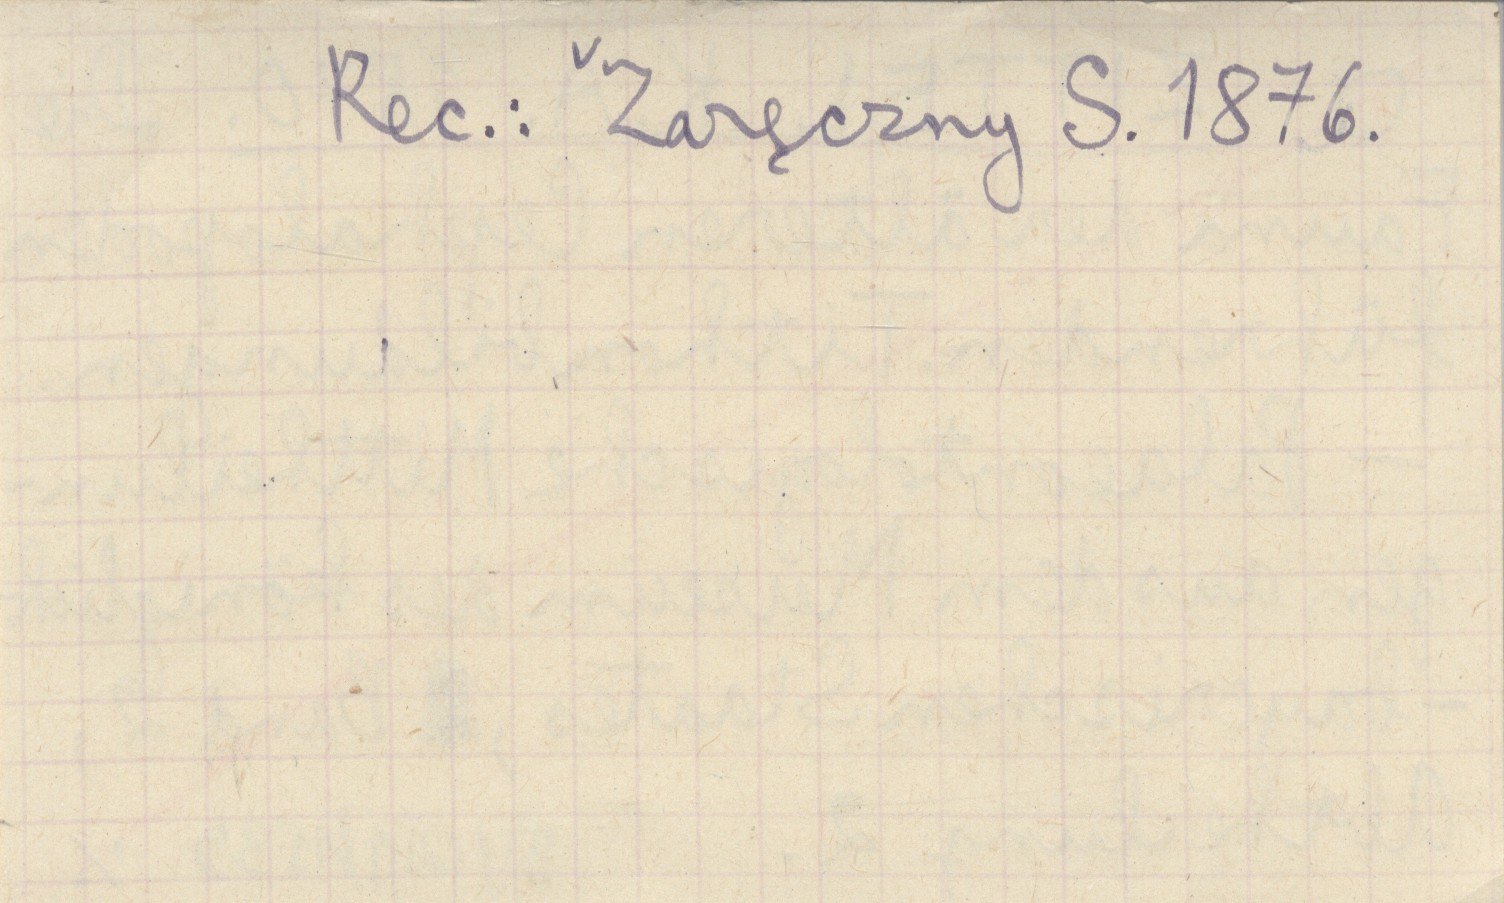 Rec.: Zaręczny S. 1876.